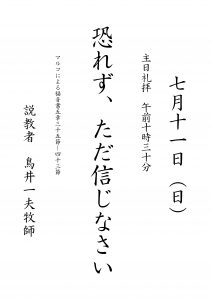 七月十一日（日）
主日礼拝　午前十時三十分
恐れず、ただ信じなさい
マルコによる福音書五章三十五節―四十三節
説教者　鳥井一夫牧師